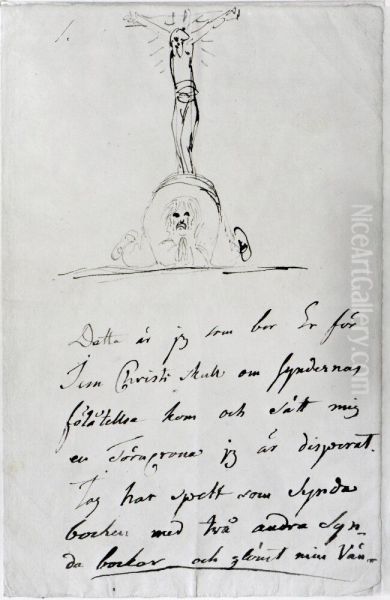 1.
Detta är jg som ber Er för
Jesu Christi skull om syndernas
förlåtellse kom och sätt mig
en Törncrona jg är disperat.
Jag har spelt som Synda
bocken med två andra Syn-
da bockar och glömt min Vän-
NiceArtGallery.com